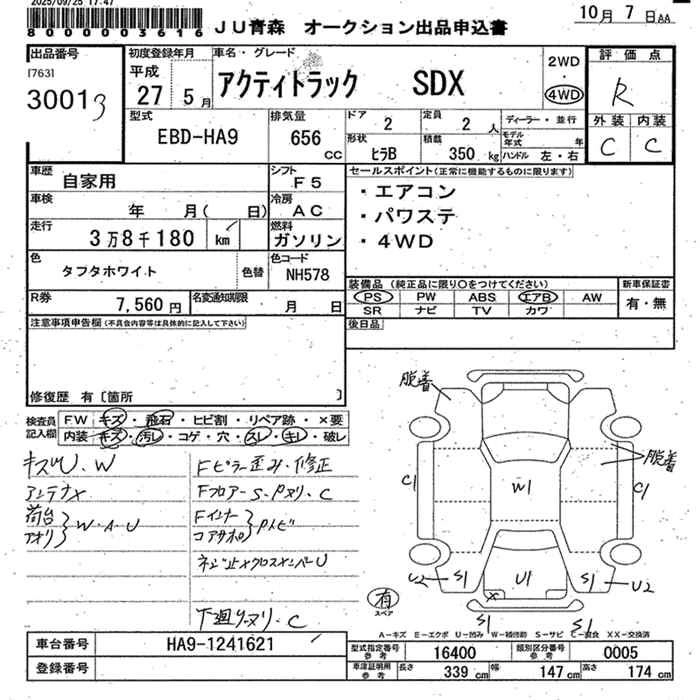 2025/09/25 17:47
8000003616
JU青森 オークション出品申込書
10月 7日AA
出品番号
初度登録年月
車名・グレード
評価点
[763]
30013
平成
27 5月
アクティトラック SDX
2WD
・
4WD
R
外装 内装
C C
型式
EBD-HA9
排気量
656
cc
ドア
2
定員
2 人
ディーラー・並行
モデル
年式 年
形状
ヒラB
積載
350 kg
ハンドル 左・右
車歴
自家用
シフト
F5
セールスポイント(正常に機能するものに限ります)
車検
年 月( 日)
冷房
AC
・エアコン
・パワステ
・4WD
走行
3万8千180 km
燃料
ガソリン
色
タフタホワイト
色替
色コード
NH578
装備品(純正品に限り○をつけてください)
新車保証書
PS PW ABS エアB AW
SR ナビ TV カワ
有・無
R券
7,560 円
名変通知期限
月 日
後日品
注意事項申告欄(不具合内容等は具体的に記入して下さい)
修復歴 有〔箇所 〕
検査員
記入欄
FW キズ・飛石・ヒビ割・リペア跡・×要
内装 キズ・汚レ・コゲ・穴・スレ・キレ・破レ
キズU、W
アンテナX
荷台
アオリ } W・A・U
Fピラー歪み・修正
Fフロアー S・Pヌリ・C
Fインナー
コアサポ } Pトビ
ネジ止メクロスメンバーU
下廻リーヌリ・C
脱着
脱着
C1
W1
C1
U2
S1
U1
S1
U2
X
有
スペア
S1
S1
A-キズ E-エクボ U-凹み W-補修跡 S-サビ C-腐食 XX-交換済
車台番号
HA9-1241621
登録番号
型式指定番号
参考
16400
類別区分番号
参考
0005
車庫証明用
参考
長さ
339 cm
幅
147 cm
高さ
174 cm